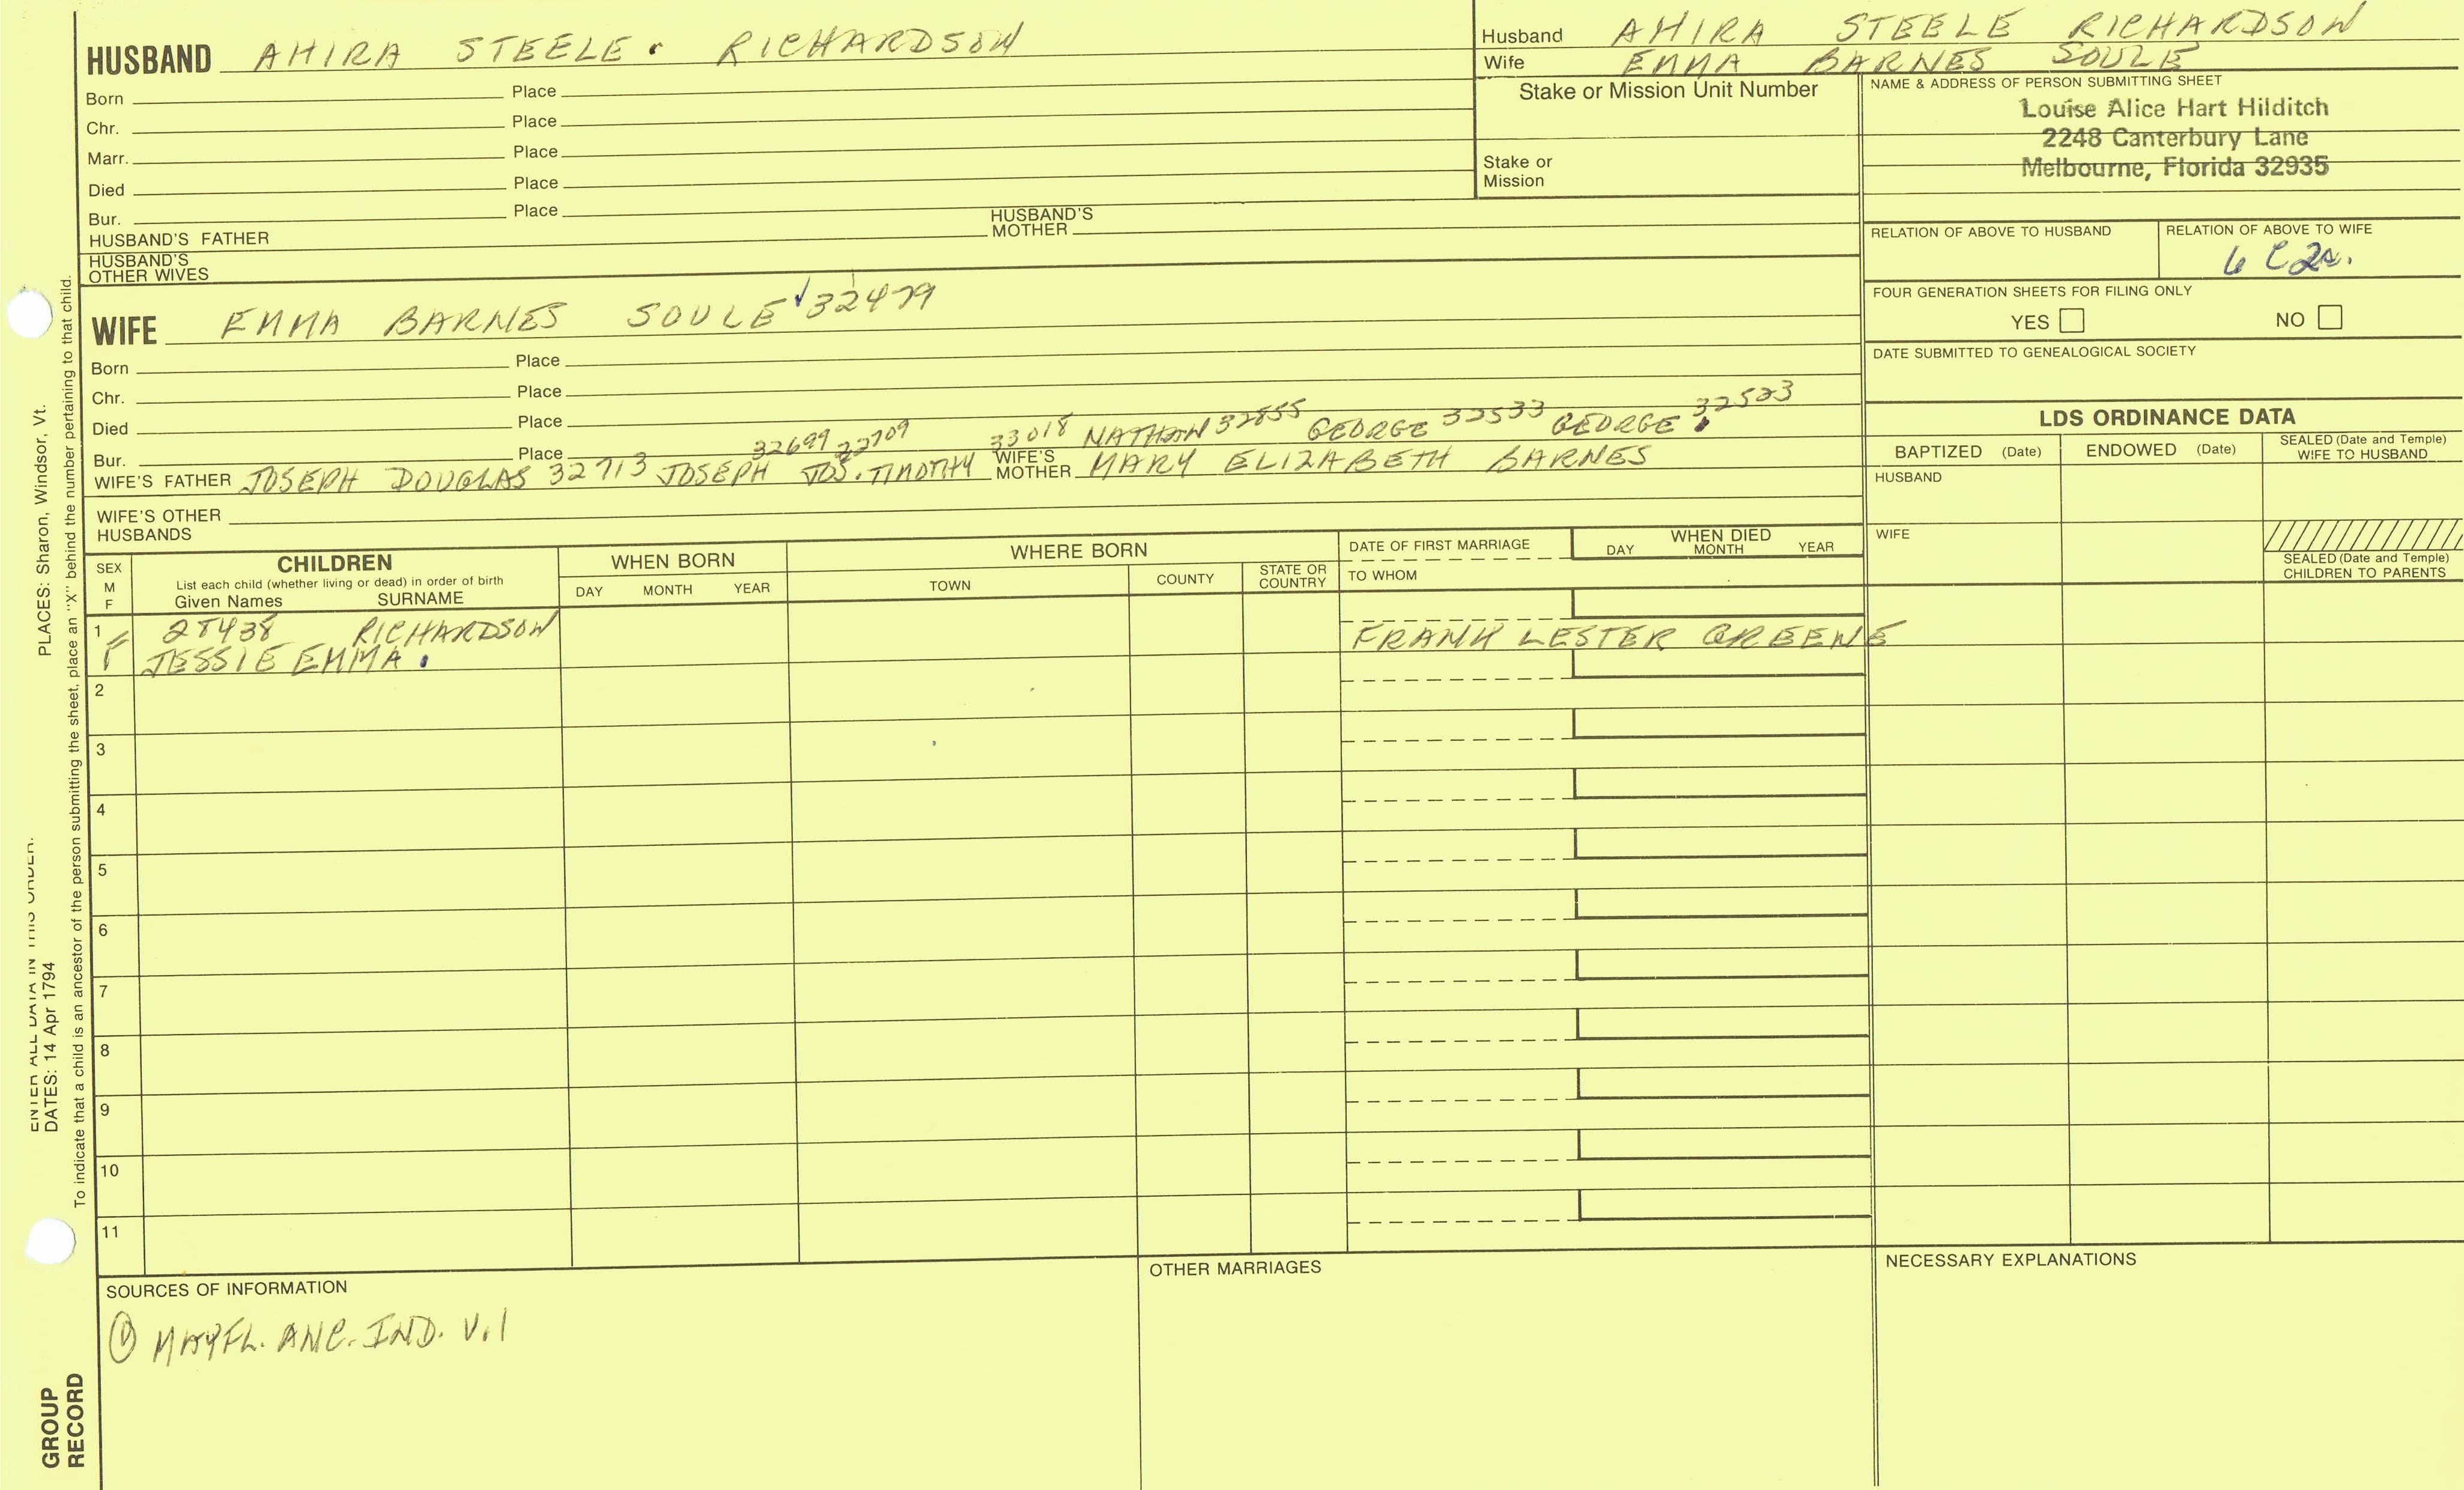 HUSBAND AHIRA STEELE RICHARDSON
Born Place
Chr. Place
Marr. Place
Died Place
Bur. Place
HUSBAND'S FATHER HUSBAND'S MOTHER
HUSBAND'S OTHER WIVES
Husband AHIRA STEELE RICHARDSON
Wife EMMA BARNES SOULE
Stake or Mission Unit Number
Stake or
Mission
NAME & ADDRESS OF PERSON SUBMITTING SHEET
Louise Alice Hart Hilditch
2248 Canterbury Lane
Melbourne, Florida 32935
RELATION OF ABOVE TO HUSBAND RELATION OF ABOVE TO WIFE
6 C 2r.
FOUR GENERATION SHEETS FOR FILING ONLY
YES NO
DATE SUBMITTED TO GENEALOGICAL SOCIETY
WIFE EMMA BARNES SOULE 32479
Born Place
Chr. Place
Died Place
Bur. Place
32699 32709 33018 NATHAN 32855 GEORGE 32533 GEORGE 32523
WIFE'S FATHER JOSEPH DOUGLAS 32713 JOSEPH JOS. TIMOTHY WIFE'S MOTHER MARY ELIZABETH BARNES
WIFE'S OTHER
HUSBANDS
LDS ORDINANCE DATA
BAPTIZED (Date) ENDOWED (Date) SEALED (Date and Temple) WIFE TO HUSBAND
HUSBAND
WIFE
SEALED (Date and Temple) CHILDREN TO PARENTS
SEX
M
F
CHILDREN
List each child (whether living or dead) in order of birth
Given Names SURNAME
WHEN BORN
DAY MONTH YEAR
WHERE BORN
TOWN COUNTY STATE OR COUNTRY
DATE OF FIRST MARRIAGE
TO WHOM
WHEN DIED
DAY MONTH YEAR
1 28438 RICHARDSON
F JESSIE EMMA FRANK LESTER GREENE
2
3
4
5
6
7
8
9
10
11
SOURCES OF INFORMATION
① MAYFL. ANC. IND. V.1
OTHER MARRIAGES
NECESSARY EXPLANATIONS
ENTER ALL DATA IN THIS ORDER:
DATES: 14 Apr 1794 PLACES: Sharon, Windsor, Vt.
To indicate that a child is an ancestor of the person submitting the sheet, place an "X" behind the number pertaining to that child.
GROUP
RECORD